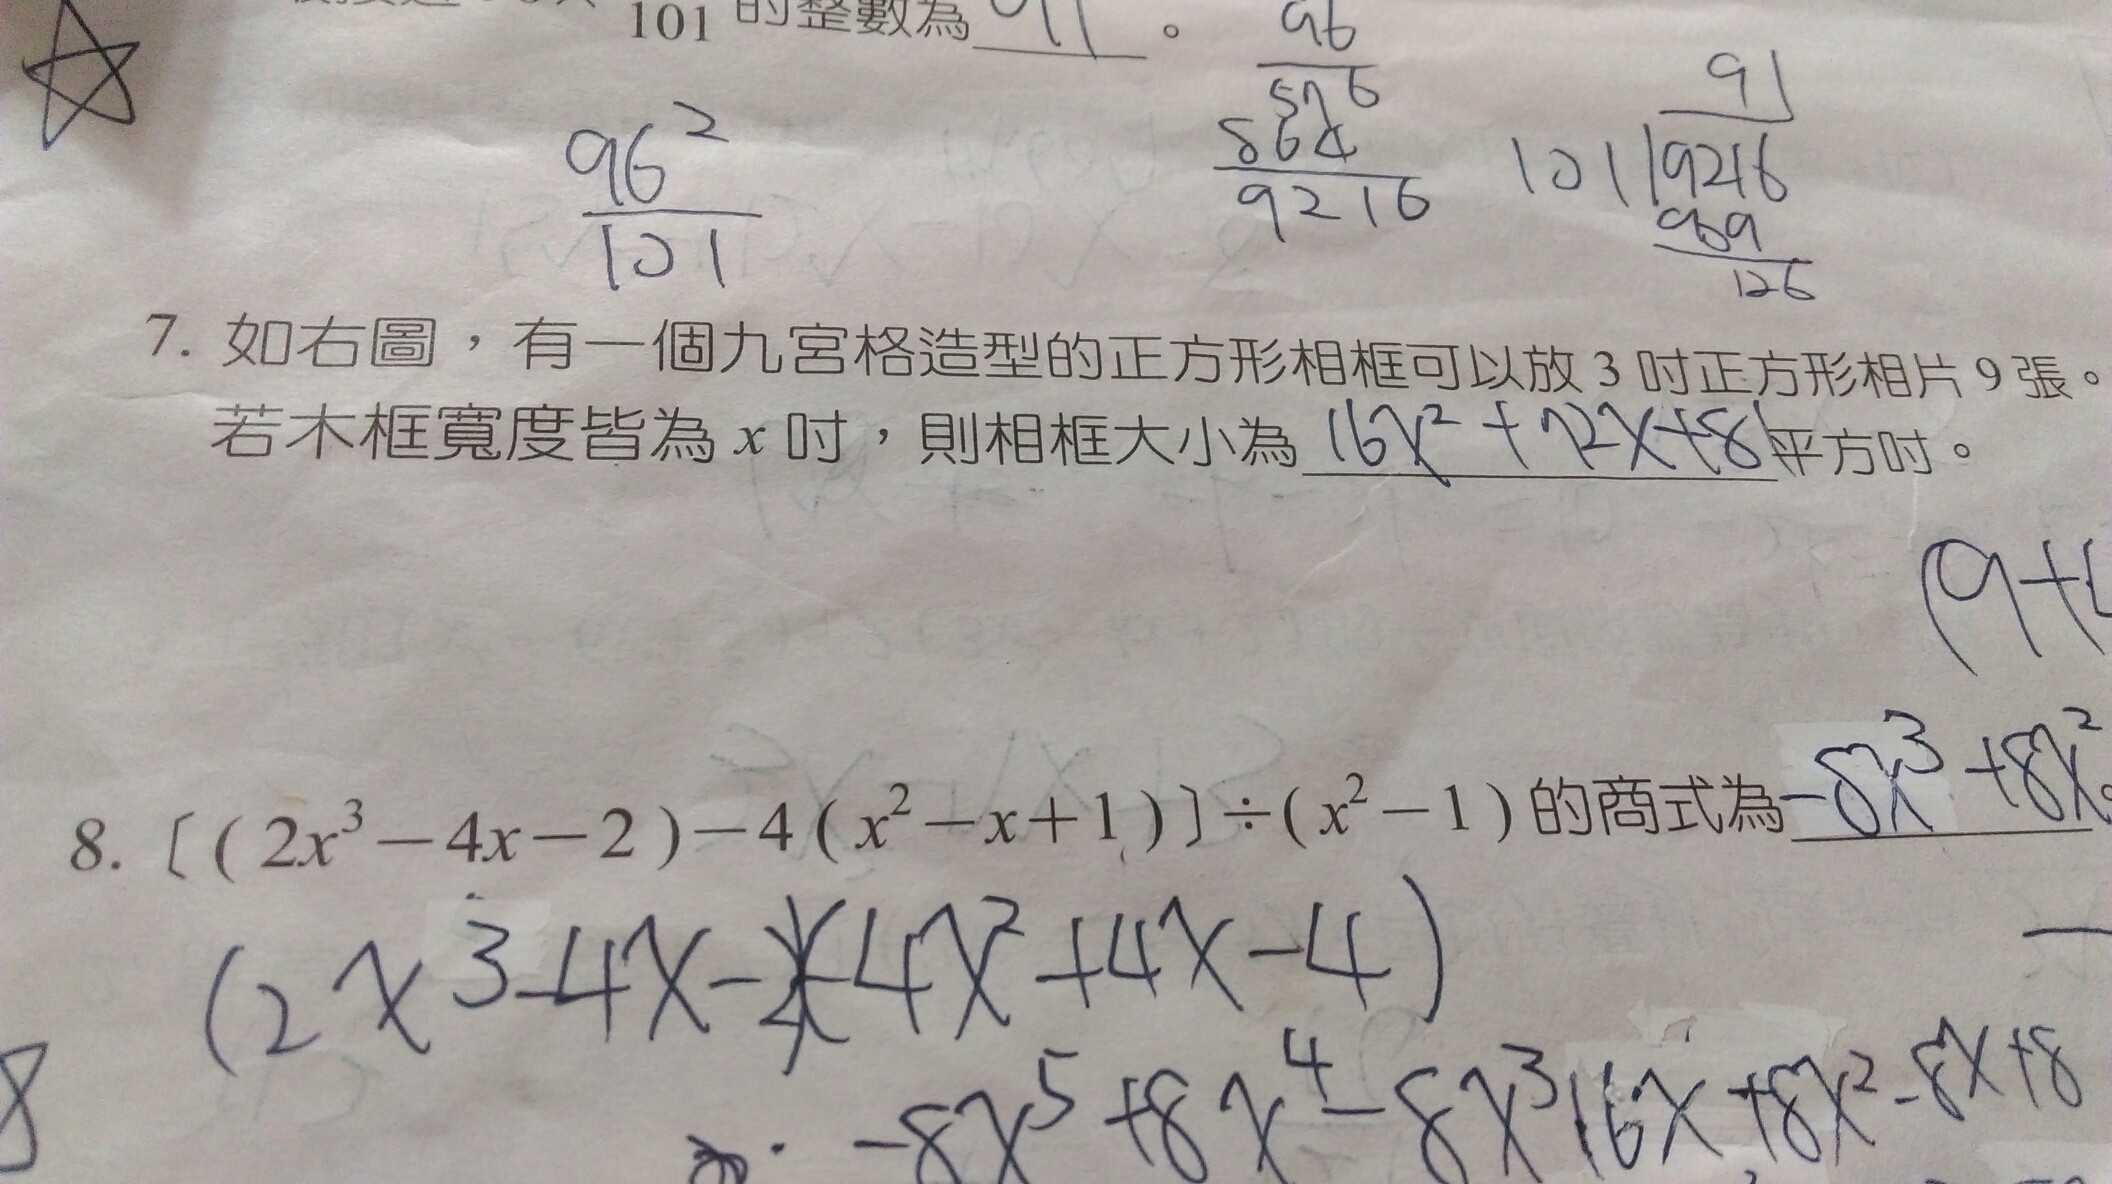 101 的整數為 91 。
96
576
864
9216
91
101 9216
909
126
96²
101
7. 如右圖，有一個九宮格造型的正方形相框可以放 3 吋正方形相片 9 張。
若木框寬度皆為 x 吋，則相框大小為 16x² + 72x + 81 平方吋。
(9+4
8. 〔( 2x³ − 4x − 2 ) − 4 ( x² − x + 1 )〕÷ ( x² − 1 ) 的商式為 -8x³ +8x² 。
(2x³-4x-2)(-4x²+4x-4)
-8x⁵ +8x⁴ -8x³ 16x +8x² -8x +8
8